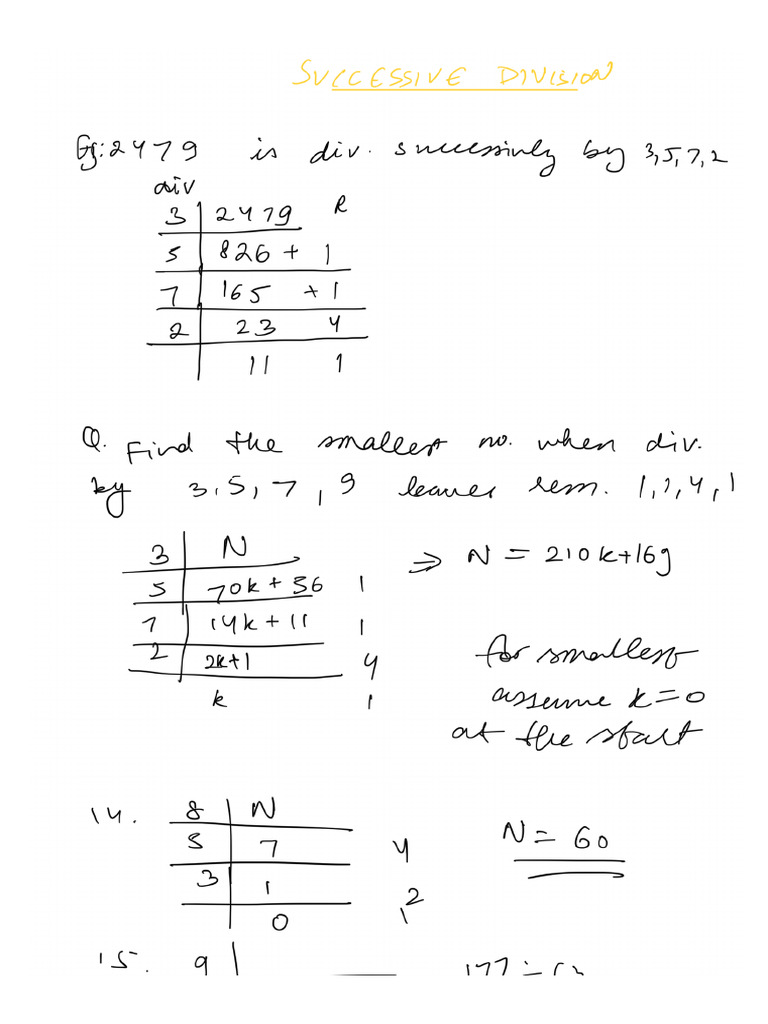 SUCCESSIVE DIVISION
Eg: 2479 is div. successively by 3,5,7,2
div
3 | 2479 R
5 | 826 + 1
7 | 165 + 1
2 | 23 4
11 1
Q. Find the smallest no. when div.
by 3, 5, 7, 9 leaves rem. 1, 1, 4, 1
3 | N ⇒ N = 210k+169
5 | 70k + 56 1
7 | 14k + 11 1
2 | 2k+1 4
k 1
for smallest
assume k=0
at the start
14. 8 | N
5 | 7 4 N = 60
3 | 1 2
0 1
15. 9 |